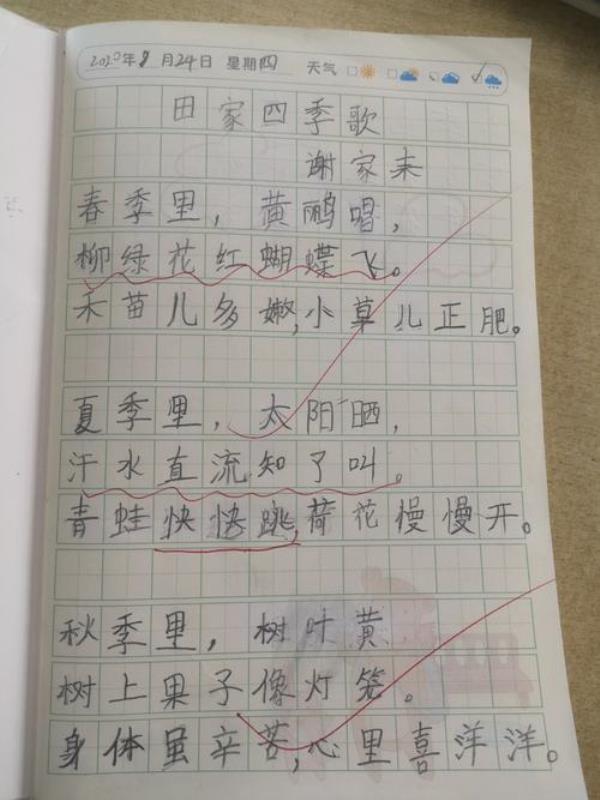 2020年9月24日 星期四 天气
田家四季歌
谢家未
春季里，黄鹂唱，
柳绿花红蝴蝶飞。
禾苗儿多嫩，小草儿正肥。
夏季里，太阳晒，
汗水直流知了叫。
青蛙快快跳，荷花慢慢开。
秋季里，树叶黄
树上果子像灯笼。
身体虽辛苦，心里喜洋洋。